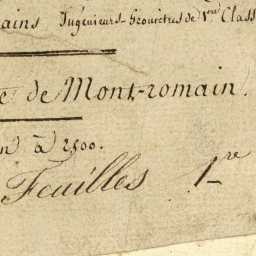 ains Ingénieurs-Géomètres de 1ere Class
e de Mont-romain.
n à 2500.
Feuilles 1re